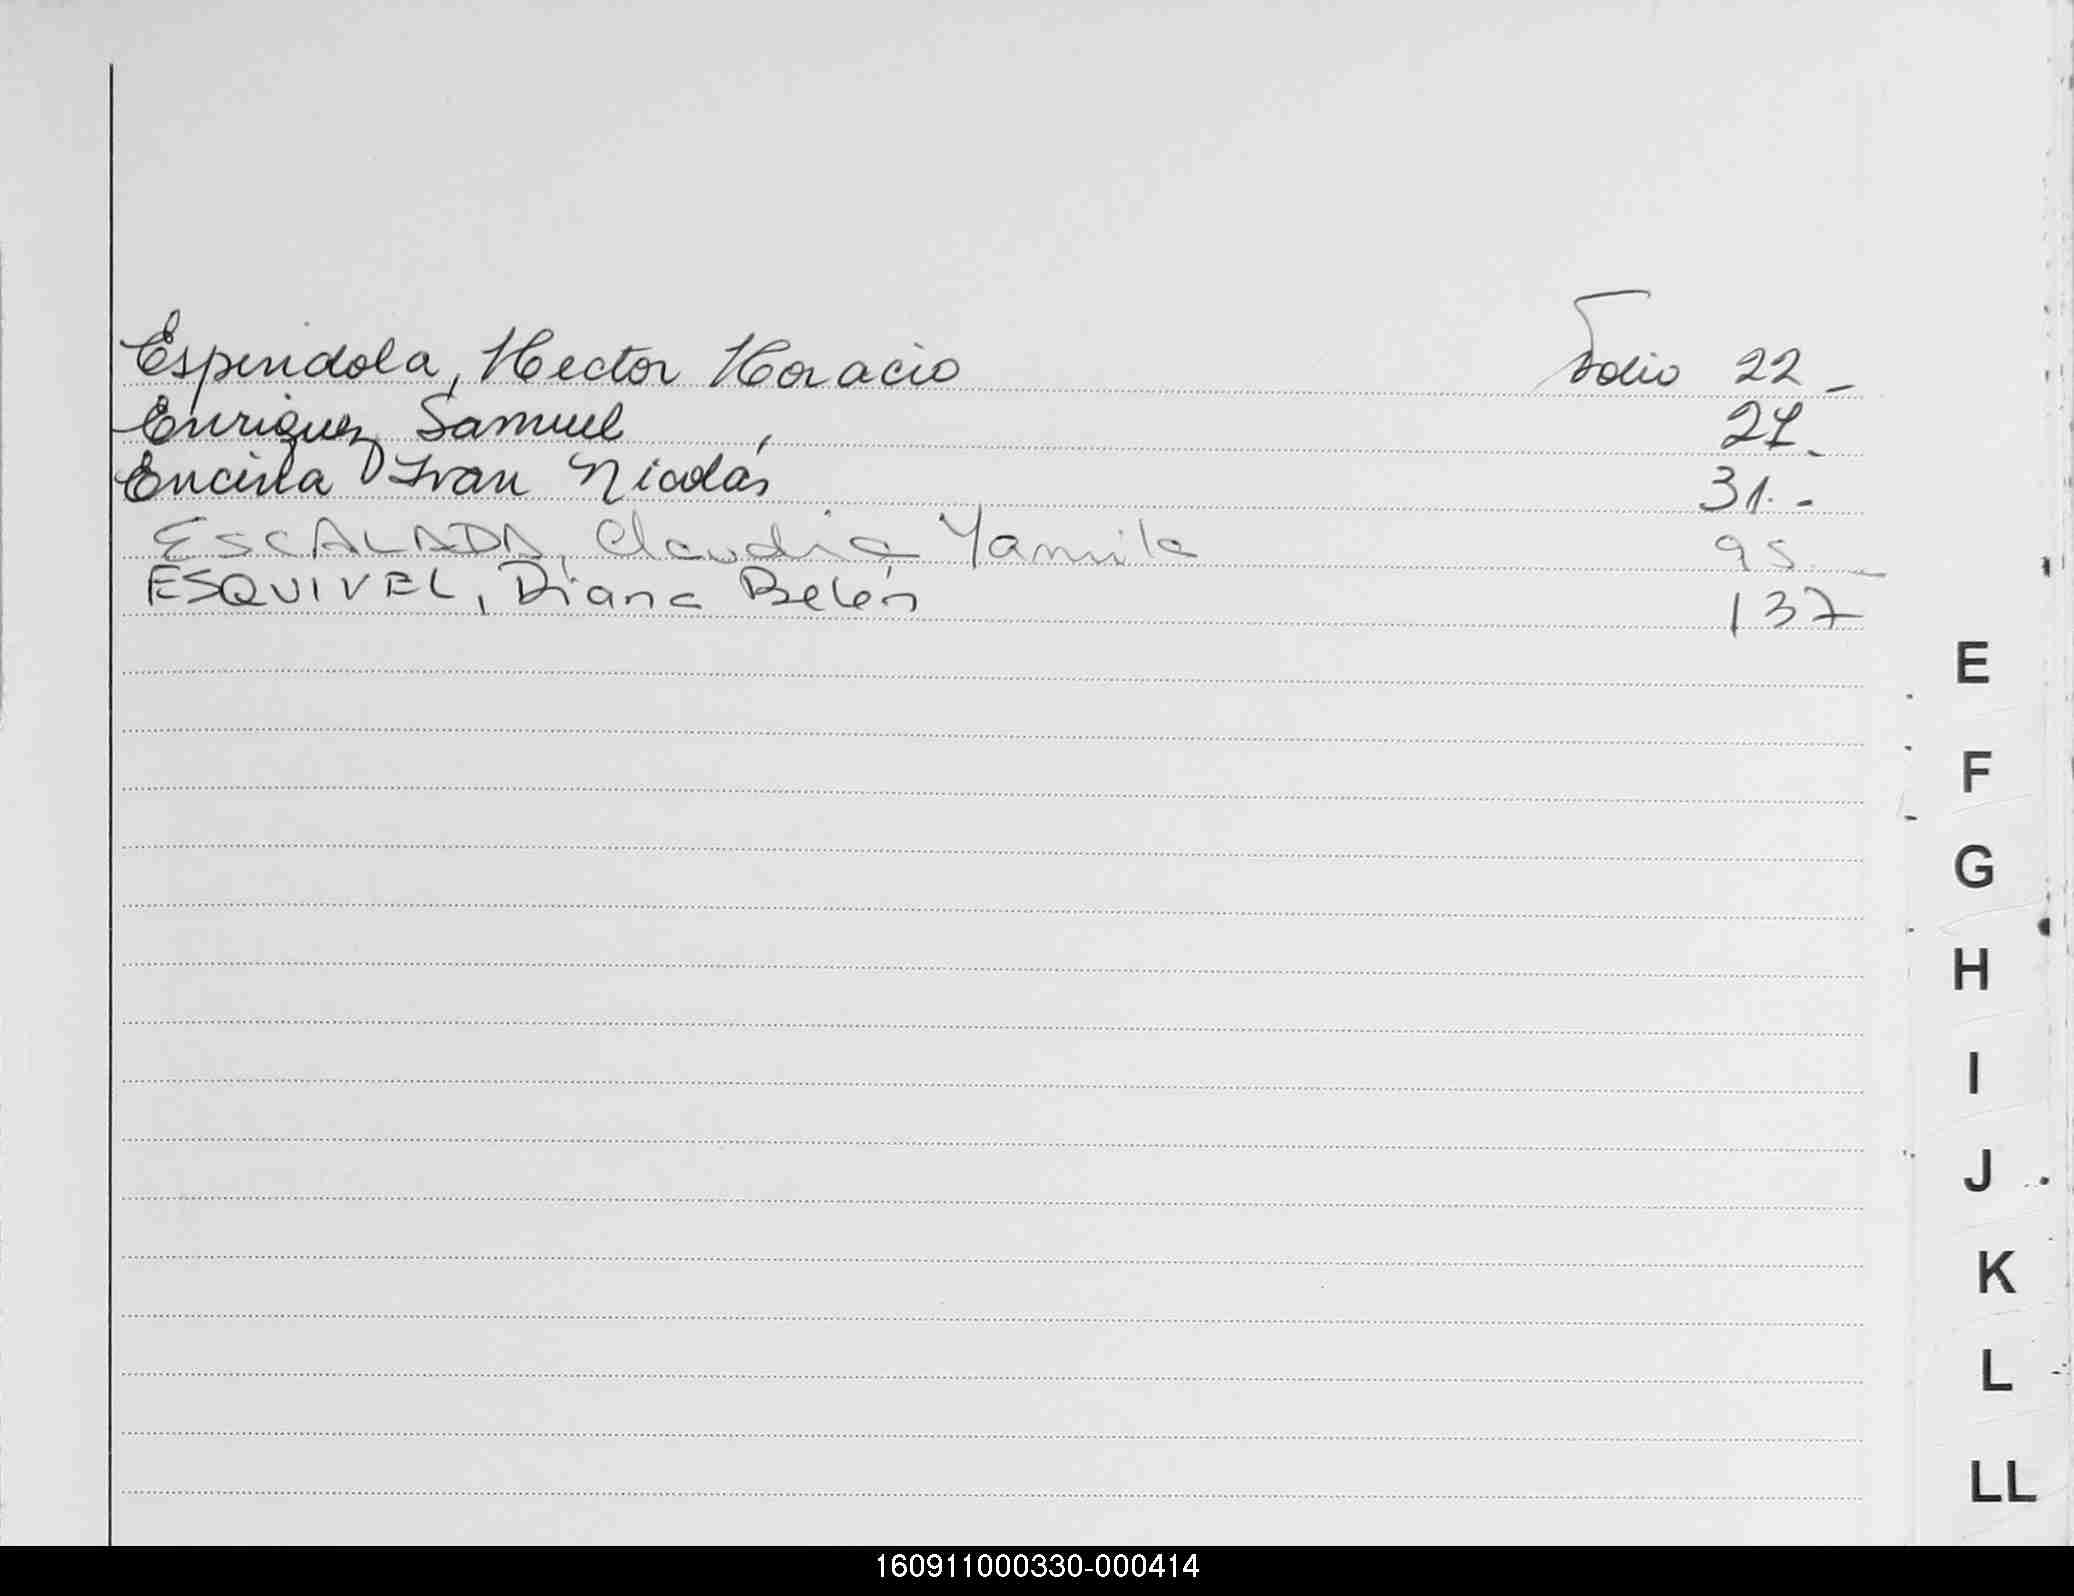 Espindola, Hector Horacio Folio 22 -
Enriquez Samuel 27.
Encina Ivan Nicolás 31. -
ESCALADA, Claudia Yamila 95 -
ESQUIVEL, Diana Belén 137
E
F
G
H
I
J
K
L
LL
160911000330-000414